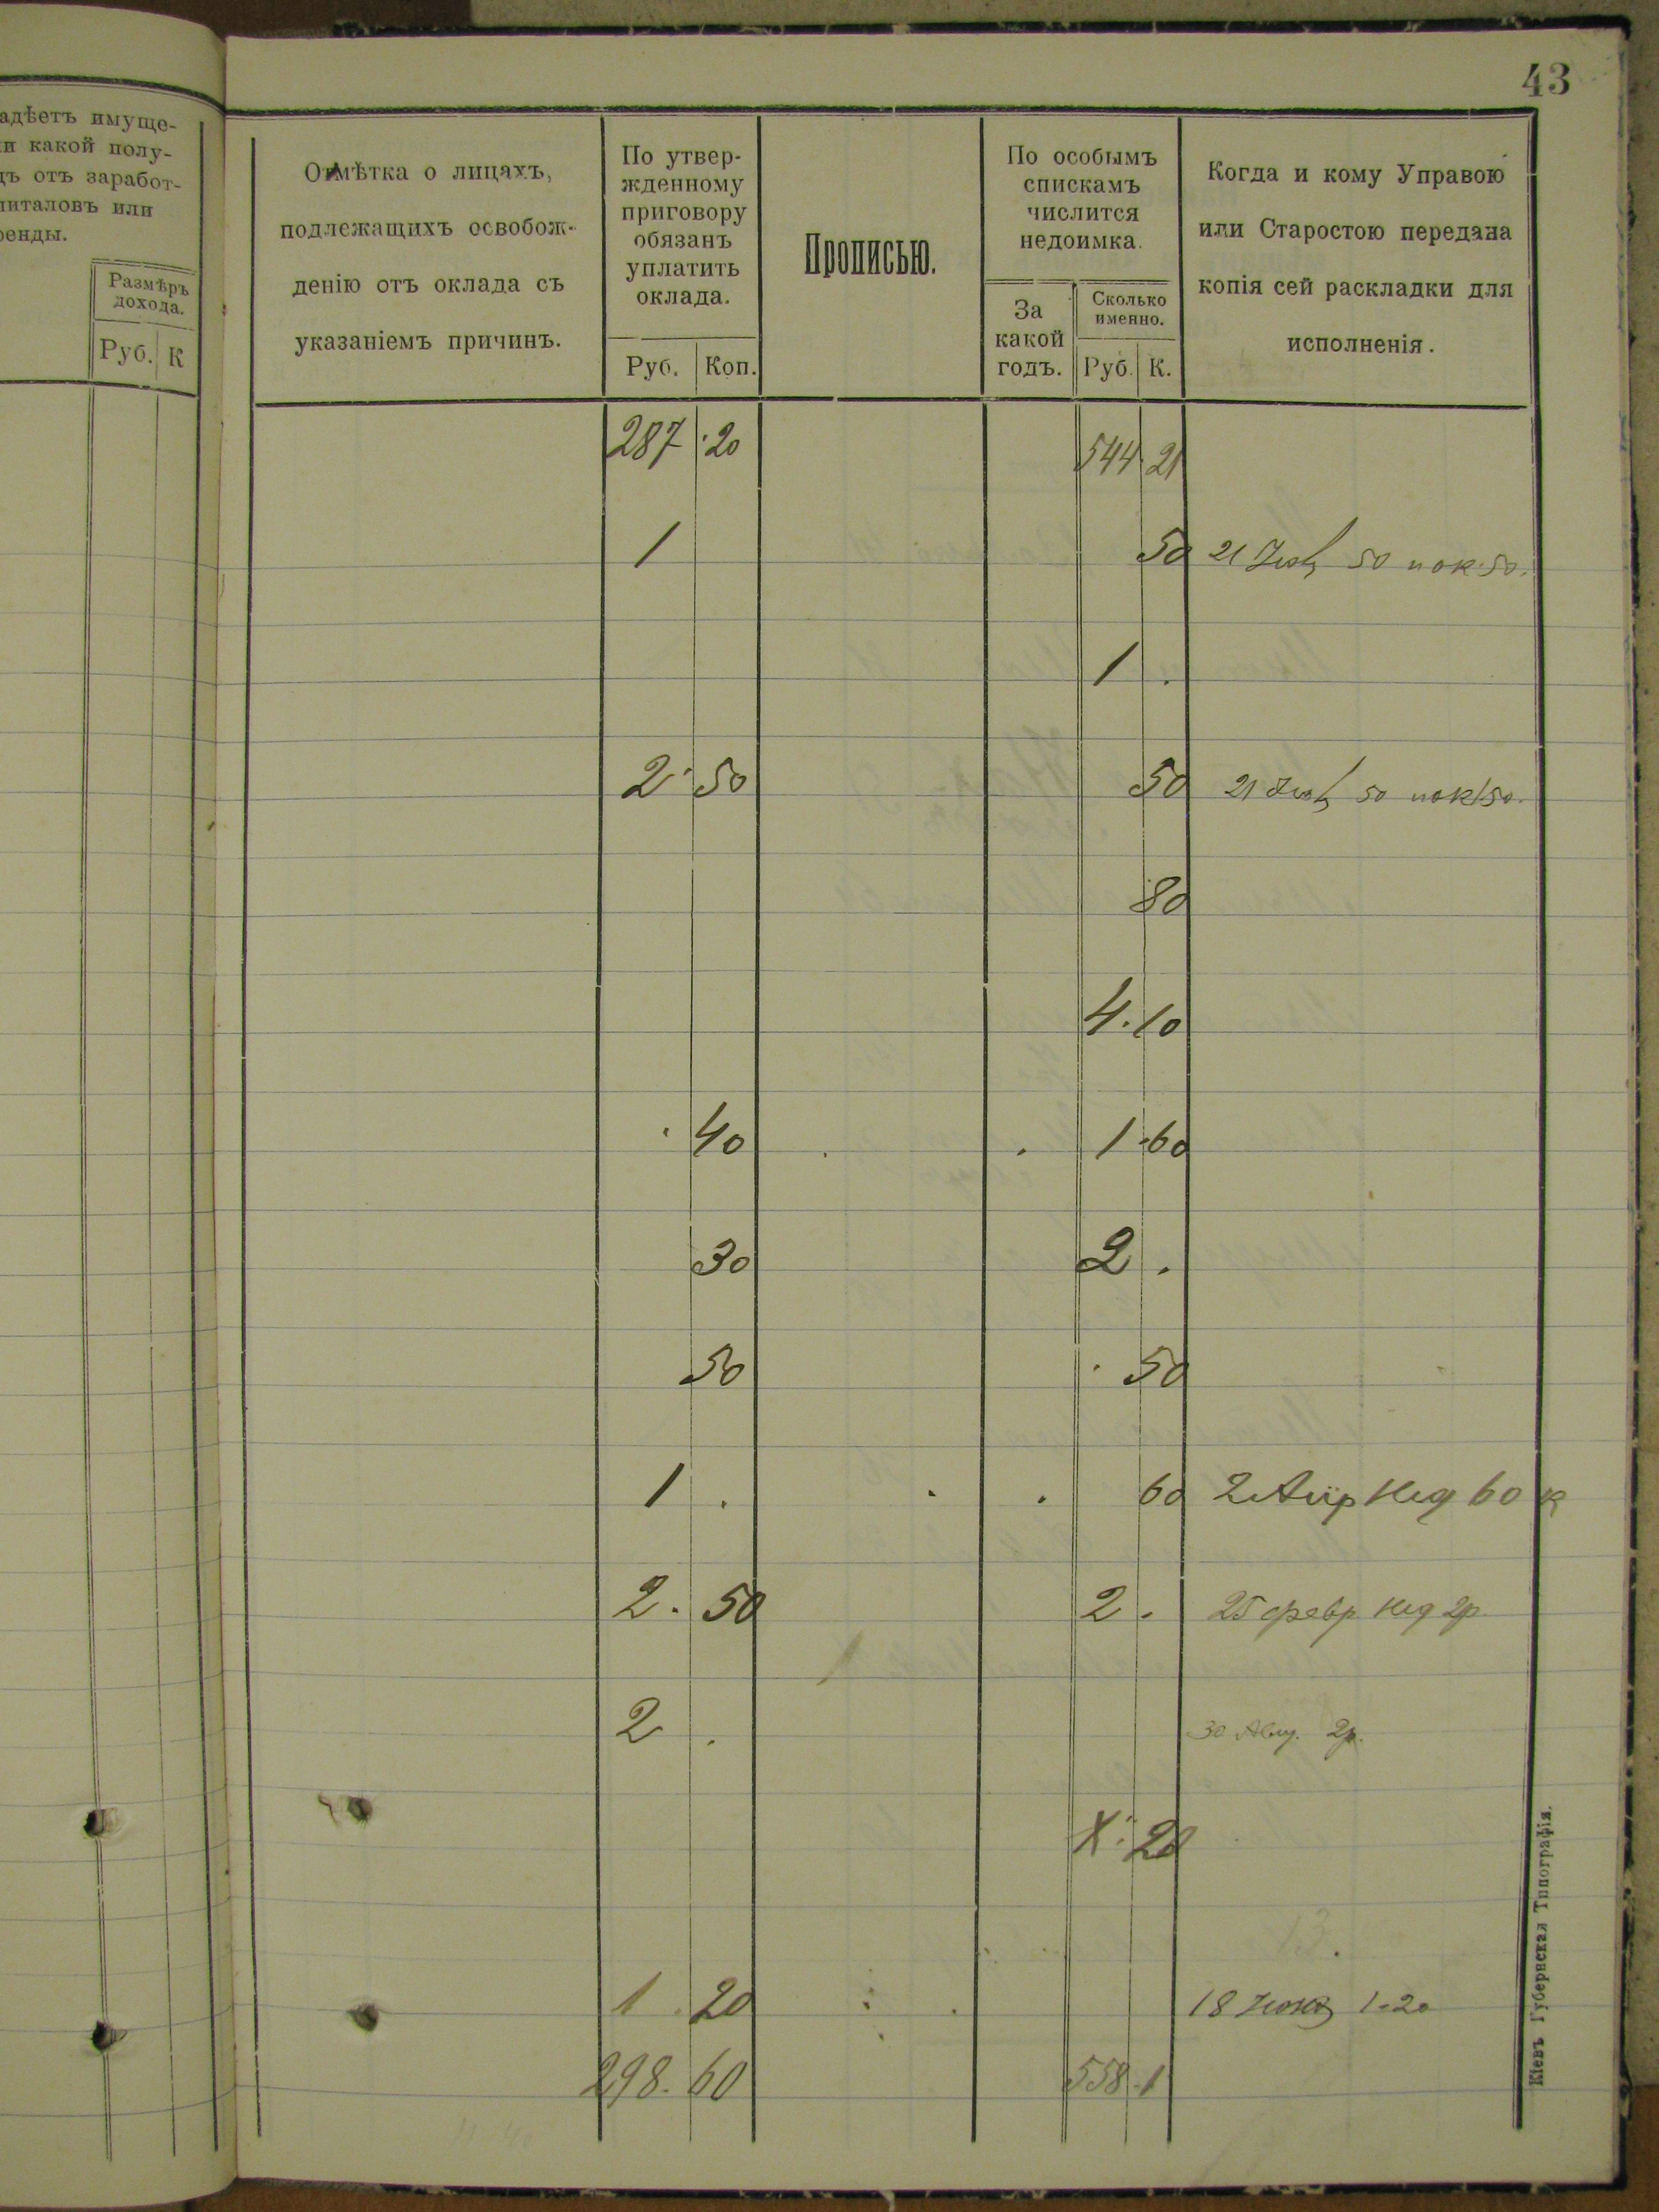 43
адѣетъ имуще-
и какой полу-
дъ отъ заработ-
питаловъ или
ренды.
Размѣръ
дохода.
Руб. К
Отмѣтка о лицахъ,
подлежащихъ освобож-
денію отъ оклада съ
указаніемъ причинъ.
По утвер-
жденному
приговору
обязанъ
уплатить
оклада.
Руб. Коп.
Прописью.
По особымъ
спискамъ
числится
недоимка.
За
какой
годъ.
Сколько
именно.
Руб. К.
Когда и кому Управою
или Старостою передана
копія сей раскладки для
исполненія.
287 20 544 21
1 50 21 50 50
1
2 50 50 21 50 50
80
4.10
40 1 60
30 2
50 50
1 60 2 Апр 60 к
2. 50 2 25 февр 2р
2 30 Авг. 2р.
20
1 20 18 1-20
298. 60 558 1
Кіевъ Губернская Типографія.